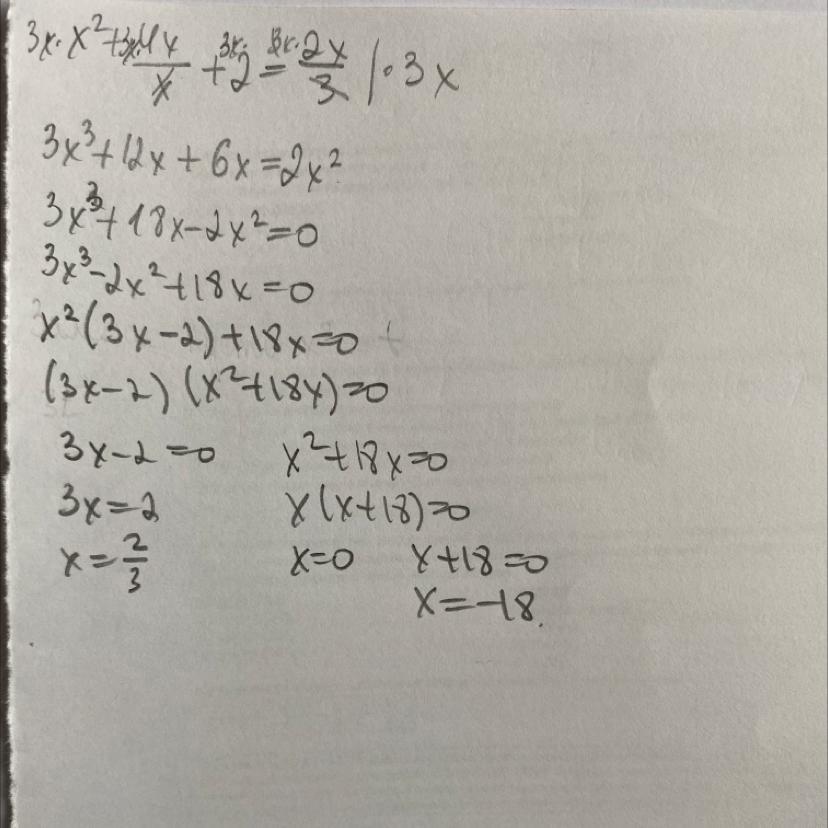 3x·x²+3x·4x/x+3x·2=3x·2x/3 /·3x
3x³+12x+6x=2x²
3x³+18x-2x²=0
3x³-2x²+18x=0
x²(3x-2)+18x=0
(3x-2)(x²+18x)=0
3x-2=0 x²+18x=0
3x=2 x(x+18)=0
x=2/3 x=0 x+18=0
x=-18